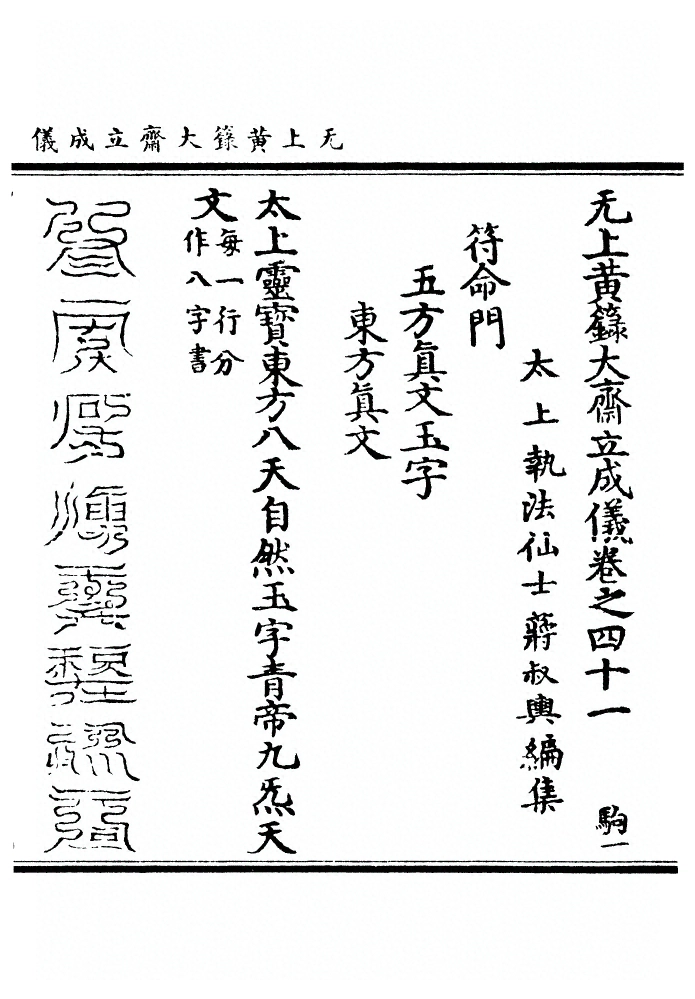 无上黃籙大齋立成儀
无上黃籙大齋立成儀卷之四十一　駒一
太上執法仙士蔣叔輿編集
符命門
五方眞文玉字
東方眞文
太上靈寶東方八天自然玉字青帝九炁天
文每一行分
作八字書